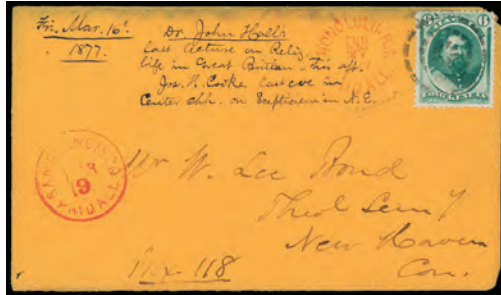 Fri. Mar. 16.
1877.
Dr. John Hall's
last lecture on Relig.
life in Great Britian - this aft.
Jos. H. Cooke last eve in
Center chh. on Scepticism in N. E.
HONOLULU
6
SAN FRANCISCO
9
PAID ALL
Mr W. Lee Bond
Theol Sem'y
New Haven
Con.
Box 118